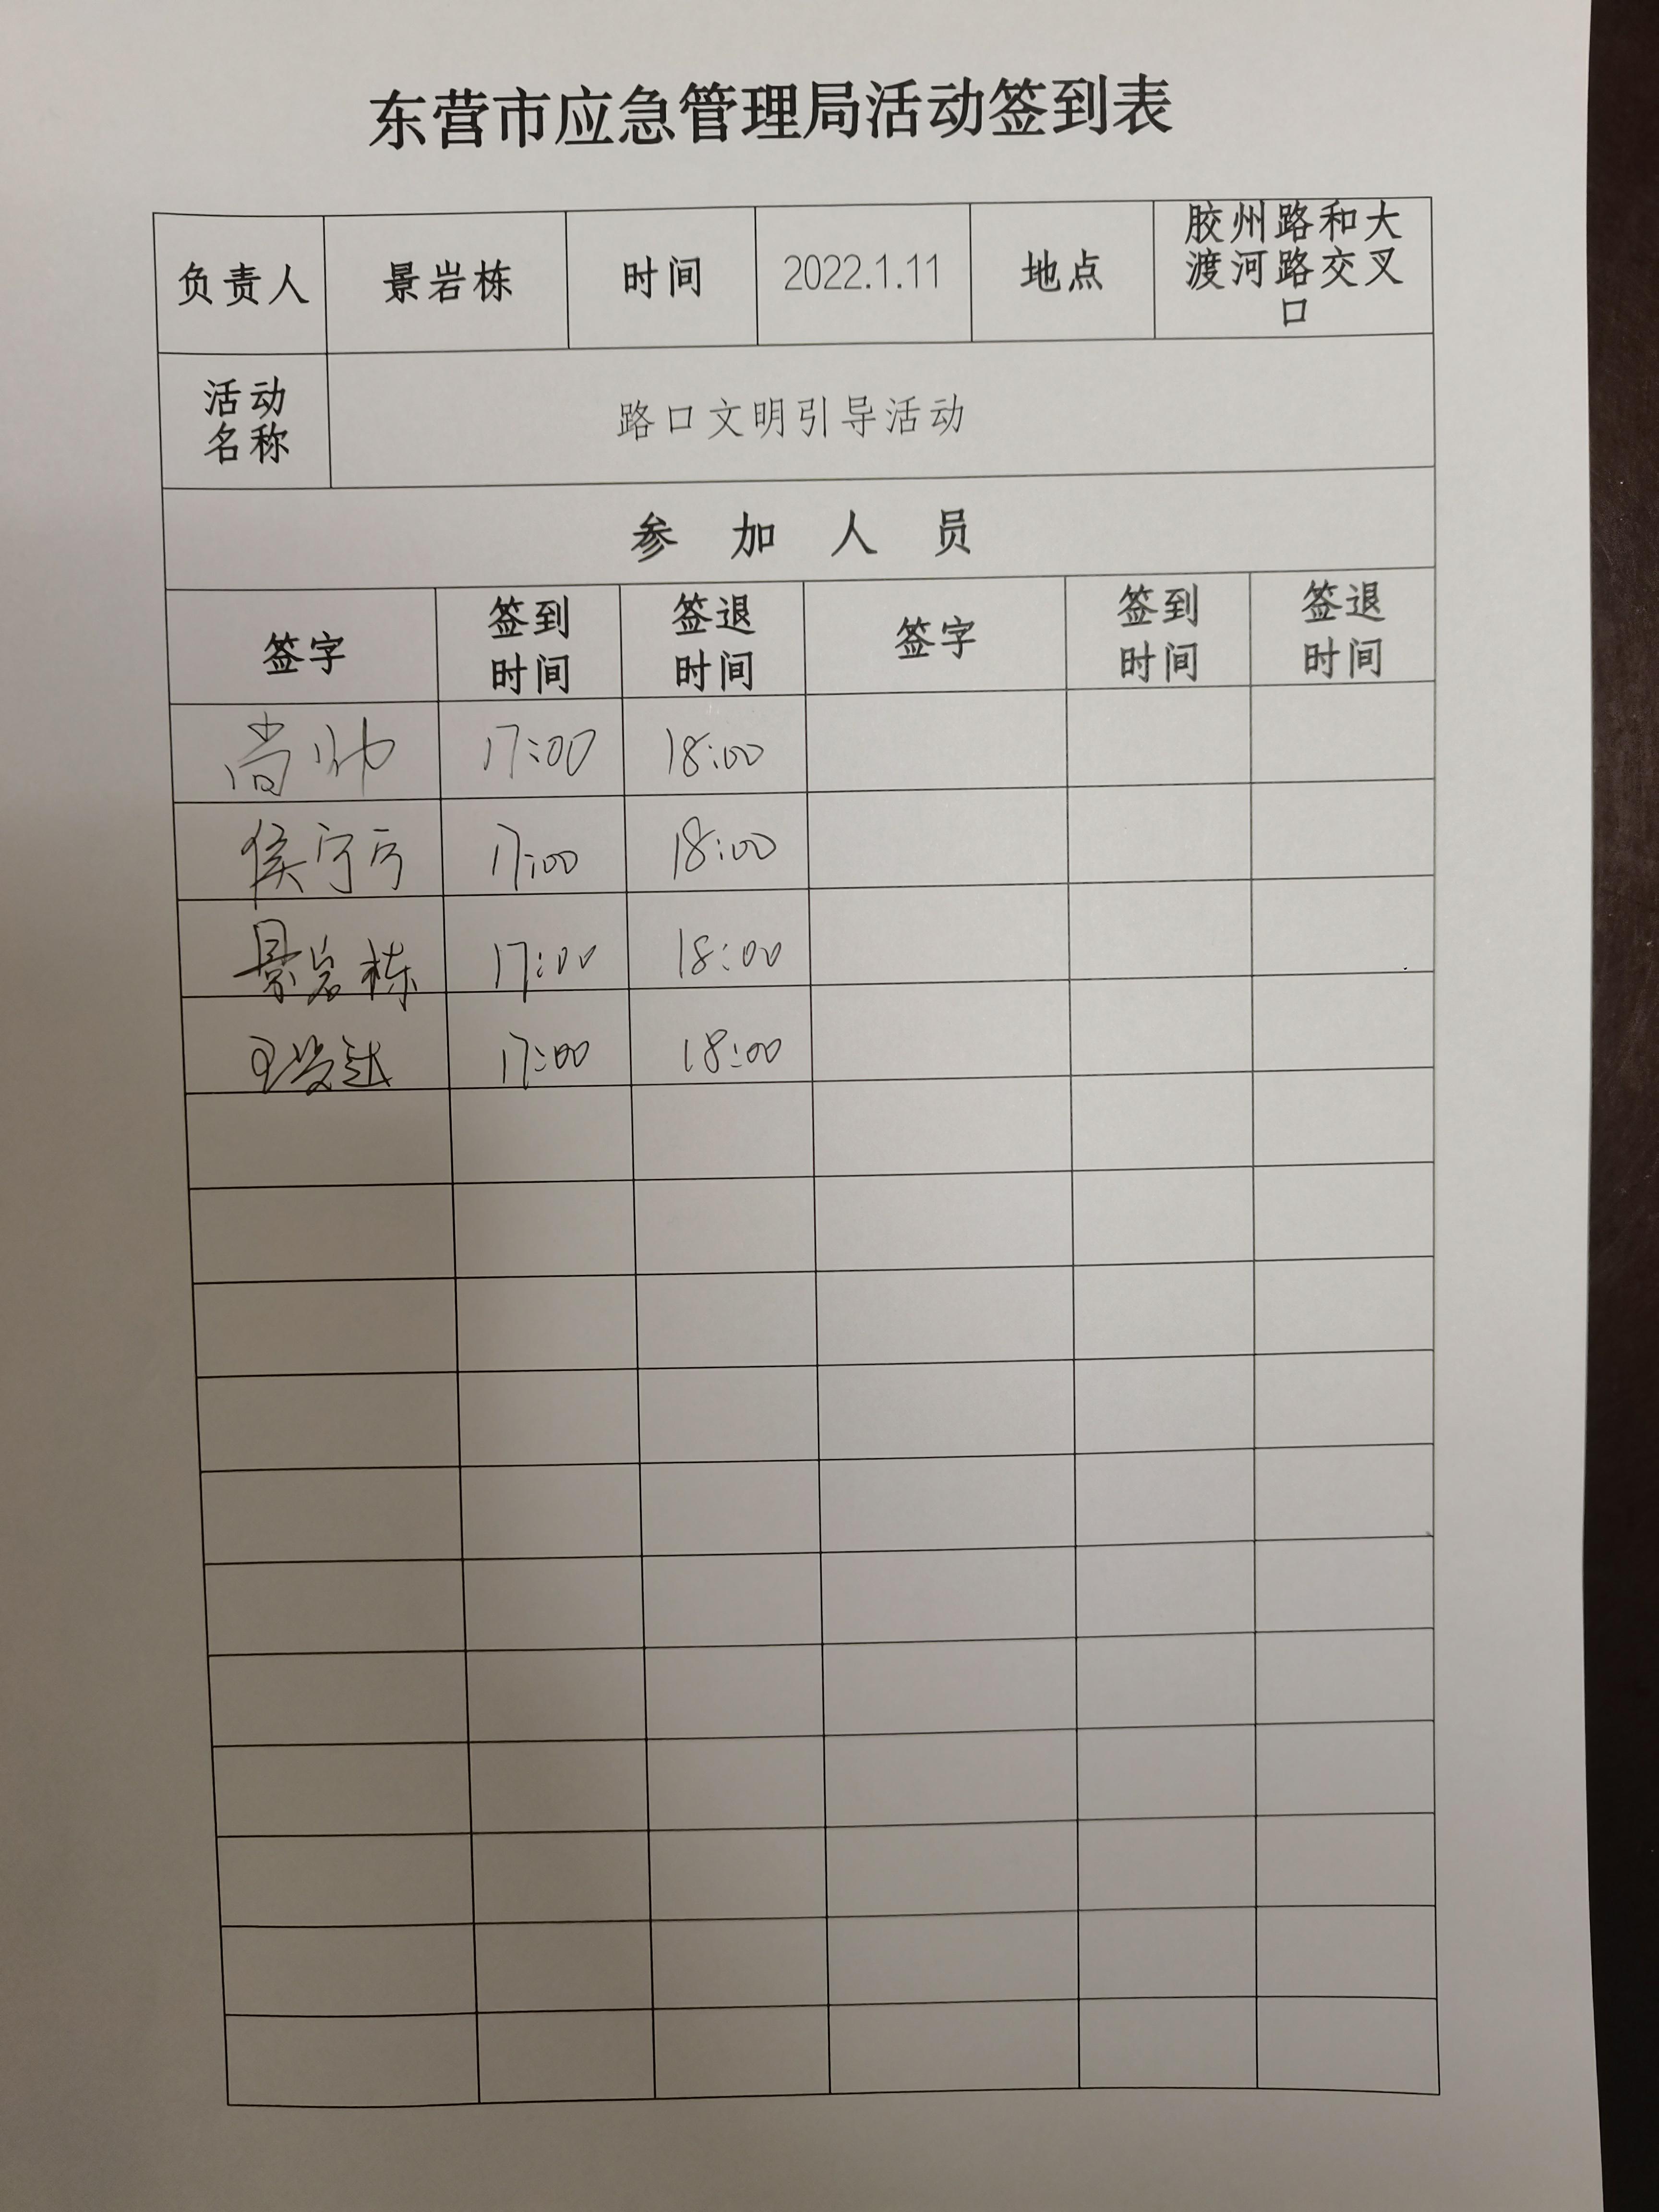 东营市应急管理局活动签到表
负责人 景岩栋 时间 2022.1.11 地点 胶州路和大
渡河路交叉
口
活动
名称
路口文明引导活动
参 加 人 员
签字 签到 签退 签字 签到 签退
时间 时间 时间 时间
尚帅 17:00 18:00
侯宁宁 17:00 18:00
景岩栋 17:00 18:00
17:00 18:00